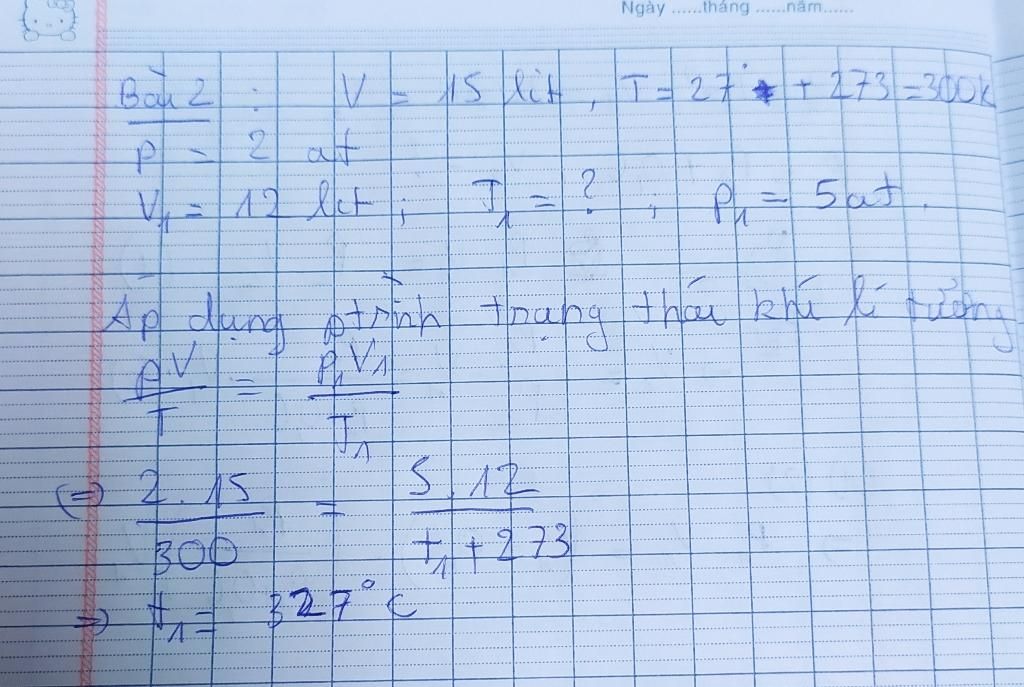 Ngày ......tháng ......năm......
Bài 2 : V = 15 lít, T = 27° + 273 = 300K
P = 2 at
V₁ = 12 lít ; T₁ = ? ; P₁ = 5at.
Áp dụng ptrình trạng thái khí lí tưởng
P.V/T = P₁V₁/T₁
(=) 2.15/300 = 5.12/t₁+273
=) t₁ = 327°C